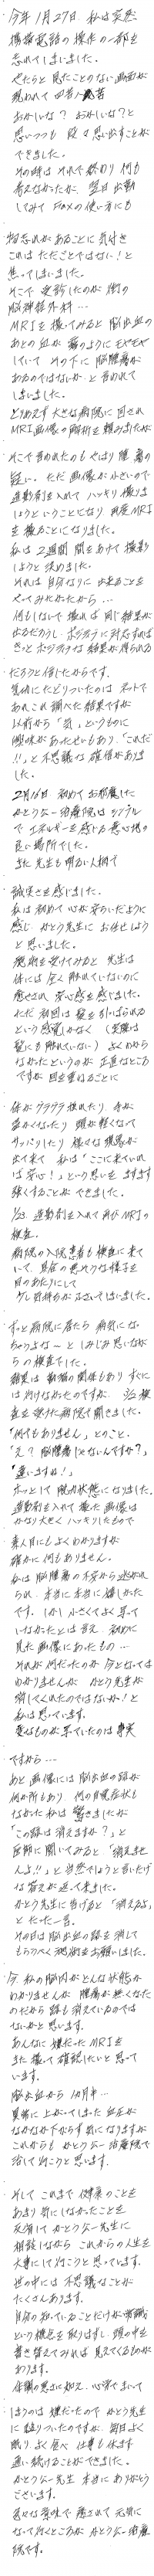 今年1月27日 私は突然
携帯電話の操作の一部を
忘れてしまいました。
やたらと見たことのない画面が
現われて 四苦八苦
おかしいな? おかしいな?と
思いつつも 段々思い出すことが
できました。
その時は それで終わり 何も
考えなかったが、翌日 出勤
してみて Faxの使い方にも
物忘れがあることに気付き
これは ただごとではない!と
焦ってしまいました。
そこで 受診したのが 街の
脳神経外科…
MRIを撮ってみると 脳出血の
あとの血が 霧のように モヤモヤ
していて その下に 脳腫瘍が
あるのではないか と言われて
しまいました。
とりあえず 大きな病院に回され
MRI画像の解析を頼みましたが
そこで言われたのも やはり腫瘍の
疑い。ただ 画像が小さいので
造影剤を入れて ハッキリ撮りま
しょうということになり 再度MRI
を撮ることになりました。
私は 2週間 間をあけて 撮影
しようと決めました。
それは 自分なりに 出来ることを
やってみたかったから…
何もしないで撮れば 同じ結果が
出るだろうし ポジティブに対応すれば
きっと ポジティブな結果が得られる
だろうと信じたからです。
気功にたどりついたのは ネットで
あれこれ調べた結果ですが
以前から「気」というものに
興味があったせいもあり「これだ
!!」と不思議な確信がありま
した。
2月16日 初めてお邪魔した
かとうなー治療院は シンプル
で エネルギーを感じる 居心地の
良い場所でした。
また 先生も 明るい人柄で
誠実さを感じました。
私は初めて 心が安らいだように
感じ かとう先生に お任せしよう
と思いました。
施術を受けてみると 先生は
体には全く触れていないのに
癒され 安心感を感じました。
ただ 初回は 髪を引っぱられる
という感覚がなく (実際は
髪にも触れていない) よくわから
なかったというのが 正直なところ
ですが 回を重ねるごとに
体がグラグラ揺れたり 手が
温かくなったり 頭が軽くなって
サッパリしたり 様々な現象が
出て来て 私は「ここに来ていれ
ば安心!」という思いを ますます
強くすることが できました。
造影剤を入れて 再びMRIの
検査。
病院の入院患者も検査に来て
いて、具合の悪そうな様子を
目のあたりにして
ゲレ気持ちが
ずっと病院に居たら 病気にな
ちゃうよな〜と しみじみ思いなが
らの検査でした。
結果は 新幹の関係もあり すぐに
は行けなかったのですが、検
査を受けた病院で聞きました。
「何でもありません」とのこと。
「え? 脳腫瘍じゃないんですか?」
「違いますね!」
ホッとして 脱力状態になりました。
造影剤を入れて撮った画像は
かなり大きく ハッキリしたもので
素人目にもよくわかりますが
確かに何もありません。
私は脳腫瘍の不安から逃がれ
られ 本当に本当に嬉しかった
です。しかし 小さくてよく見て
いなかったとは言え 初めに
見た画像にあったもの…
それが何だったのか 今となっては
わかりませんが かとう先生が
消してくれたのではないか!と
私は思っています。
変なものが見ていたのは 事実
ですから…
あと 画像には 脳出血の跡が
何か所もあり 何の自覚症状も
なかった私は 驚きましたが
「この跡は消えますか?」と
医師に聞いてみると「消えませ
んよ!!」と当然でしょうと言いたげ
な答えが返って来ました。
かとう先生に告げると「消えるよ」
とたった一言。
その日は 脳出血の跡を消して
もらうべく 施術をお願いしました。
今 私の脳内が どんな状態か
わかりませんが 腫瘍が無くなた
のだから 跡も消えているのでは
ないかと思います。
あんなに嫌だったMRIを
また撮って確認したいと思って
います。
脳出血から1カ月半…
異常に上がってしまった血圧が
なかなか下がらず 気になりますが
これからも かとうなー治療院で
治して行こうと思います。
そして これまで 健康のことを
あまり気にしなかったことを
反省して かとうなー先生に
相談しながら これからの人生を
大事にして行こうと思っています。
世の中には 不思議なことが
たくさんあります。
自分の知っていることだけが常識
という概念を取りはずし、頭の中を
書き替えてみれば 見えてくるものが
あります。
体調の悪さに加え 心配でまいって
ほうのは 嫌だったので かとう先生
に頼りついたのですが、毎日よく
眠り よく食べ 仕事も休まず
通い続けることができました。
かとうなー先生 本当に ありがとう
ございます。
色々な意味で 癒されて 元気に
なって行くところが かとうなー治療
院です。